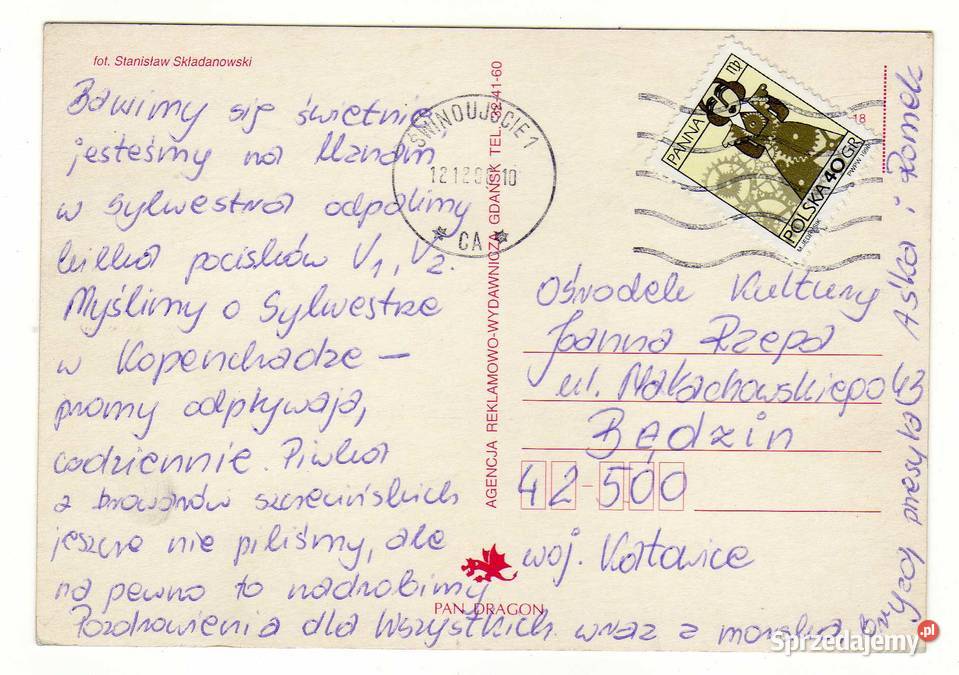 fot. Stanisław Składanowski
Bawimy się świetnie
jesteśmy na
w Sylwestra odpalimy
kilka pocisków V1, V2.
Myślimy o Sylwestrze
w Kopenhadze –
promy odpływają
codziennie. Piwka
z browarów szczecińskich
jeszcze nie piliśmy, ale
na pewno to nadrobimy
Pozdrowienia dla Wszystkich wraz z morską
bryzą przesyła Aśka i Romek
AGENCJA REKLAMOWO-WYDAWNICZA GDAŃSK TEL. 32-41-60
PAN DRAGON
ŚWINOUJŚCIE 1
12 12 9 10
* CA *
PANNA
POLSKA 40 GR
PWPW 1996
M. JĘDRYSIK
18
Ośrodek Kultury
Joanna Rzepa
ul. Małachowskiego 43
Będzin
42-500
woj. Katowice
Sprzedajemy.pl